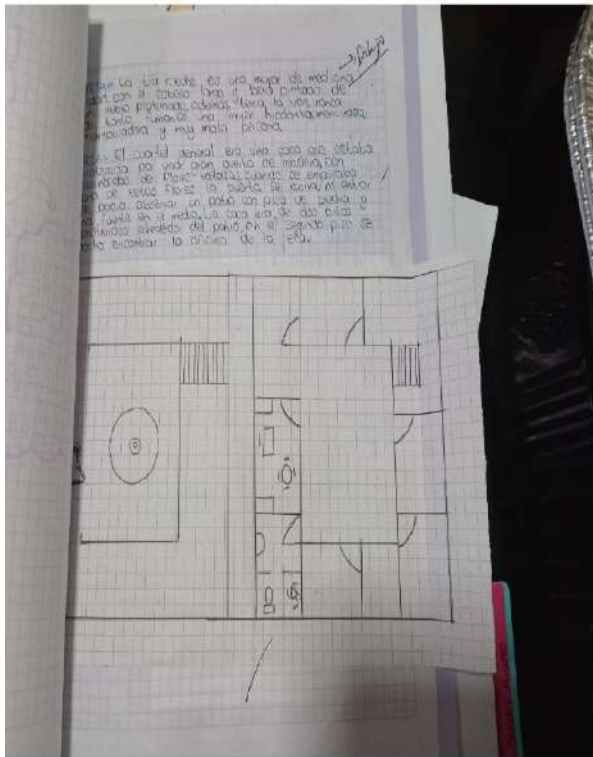 → Dibujo
La tía meche es una mujer de mediana
edad con el cabello largo y lacio pintado de
rubio platinado, además, tiene la voz ronca
tanto fumar es una mujer hipócrita, mentirosa,
manipuladora y muy mala persona.
El cuartel general era una casa que estaba
por una gran puerta de madera, con
de flores cuando se
de estas flores la puerta se al entrar
se podía observar un patio con piso de piedra y
una fuente en el medio. La casa era de dos pisos y
alrededor del patio, en el segundo piso se
podía encontrar la oficina de la jefa.